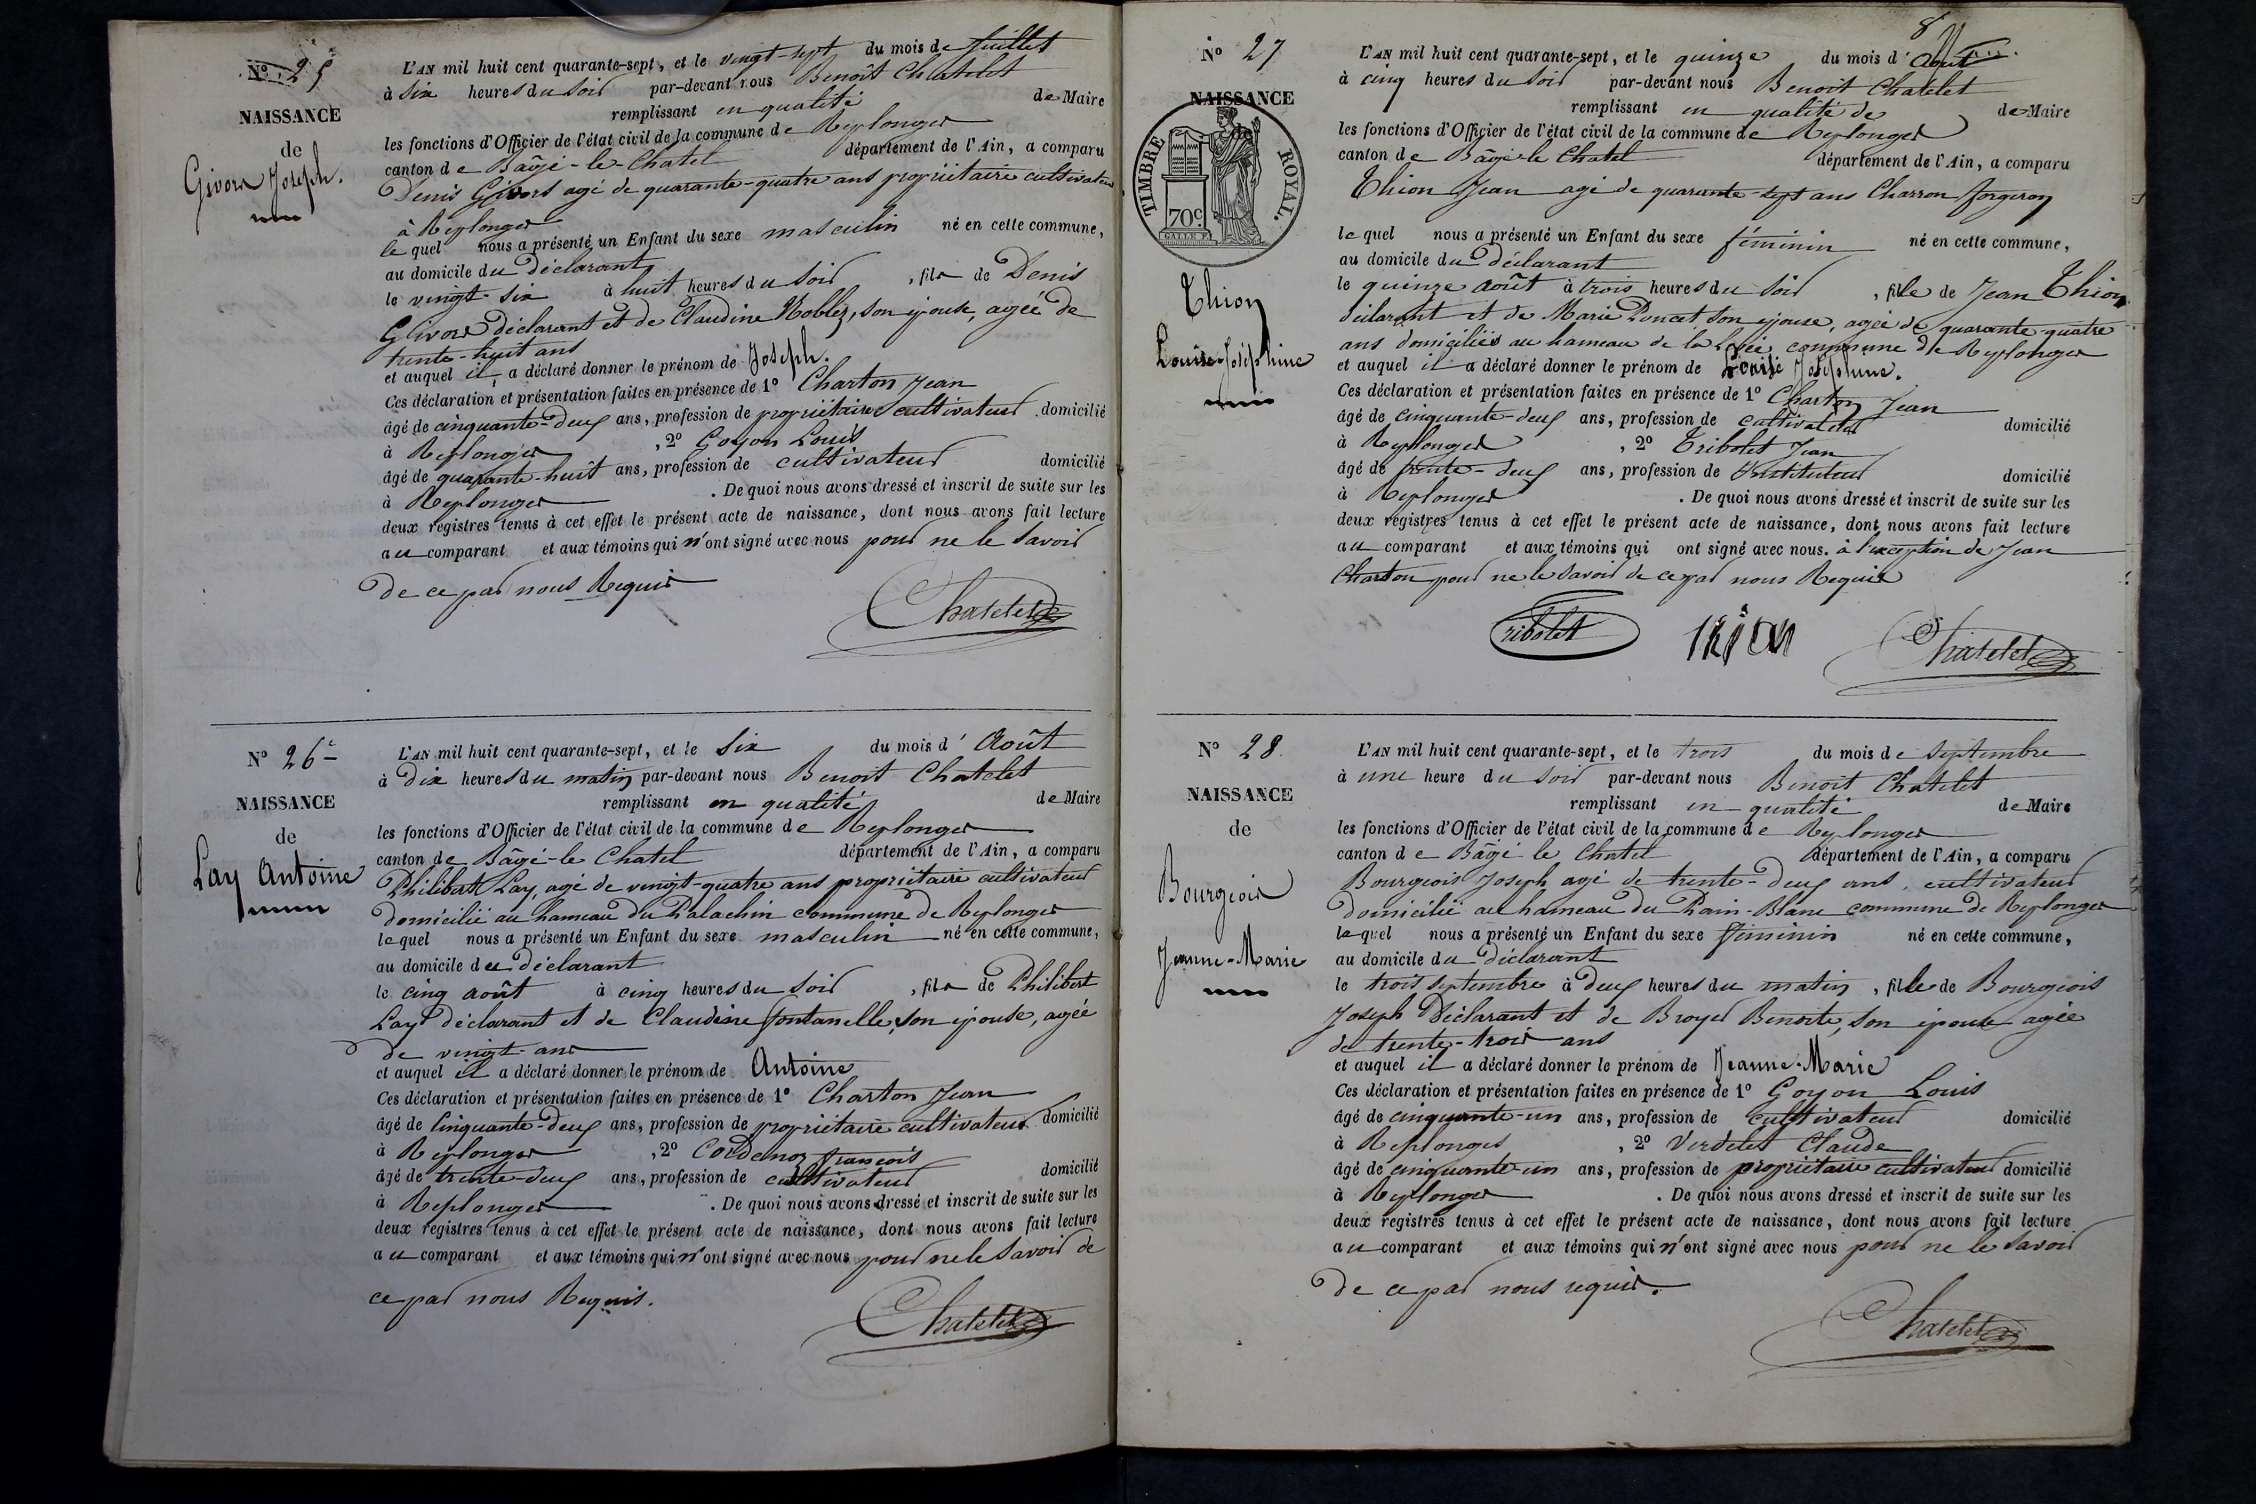 N° 25
NAISSANCE
de
Givors Joseph.
L'AN mil huit cent quarante-sept, et le vingt-sept du mois de Juillet
à six heures du soir par-devant nous Benoît Chatelet
remplissant en qualité de Maire
les fonctions d'Officier de l'état civil de la commune de Replonges
canton de Bâgé-le-Chatel département de l'Ain, a comparu
Denis Givors agé de quarante-quatre ans propriétaire cultivateur
à Replonges
le quel nous a présenté un Enfant du sexe masculin né en cette commune,
au domicile du déclarant
le vingt-six à huit heures du soir, fils de Denis
Givors déclarant et de Claudine Noblez, son épouse, agée de
trente-huit ans
et auquel il a déclaré donner le prénom de Joseph.
Ces déclaration et présentation faites en présence de 1° Charton Jean
âgé de cinquante-deux ans, profession de propriétaire cultivateur domicilié
à Replonges, 2° Goyon Louis
âgé de quarante-huit ans, profession de cultivateur domicilié
à Replonges. De quoi nous avons dressé et inscrit de suite sur les
deux registres tenus à cet effet le présent acte de naissance, dont nous avons fait lecture
au comparant et aux témoins qui n'ont signé avec nous pour ne le savoir
de ce par nous Requis
Chatelet
N° 26
NAISSANCE
de
Lay Antoine
L'AN mil huit cent quarante-sept, et le six du mois d' Août
à dix heures du matin par-devant nous Benoit Chatelet
remplissant en qualité de Maire
les fonctions d'Officier de l'état civil de la commune de Replonges
canton de Bâgé-le Chatel département de l'Ain, a comparu
Philibert Lay, agé de vingt-quatre ans propriétaire cultivateur
domicilié au hameau du Palachin commune de Replonges
lequel nous a présenté un Enfant du sexe masculin né en cette commune,
au domicile du déclarant
le cinq août à cinq heures du soir, fils de Philibert
Lay déclarant et de Claudine fontanelle, son épouse, agée
de vingt-ans
et auquel il a déclaré donner le prénom de Antoine
Ces déclaration et présentation faites en présence de 1° Charton Jean
âgé de Cinquante-deux ans, profession de propriétaire cultivateur domicilié
à Replonges, 2° Cordenoz françois
âgé de trente-deux ans, profession de cultivateur domicilié
à Replonges. De quoi nous avons dressé et inscrit de suite sur les
deux registres tenus à cet effet le présent acte de naissance, dont nous avons fait lecture
au comparant et aux témoins qui n'ont signé avec nous pour ne le savoir de
ce par nous Requis.
Chatelet
8
N° 27
NAISSANCE
TIMBRE ROYAL.
70c
Thion
Louise-Joséphine
L'AN mil huit cent quarante-sept, et le quinze du mois d' Août
à cinq heures du soir par-devant nous Benoit Chatelet
remplissant en qualité de de Maire
les fonctions d'Officier de l'état civil de la commune de Replonges
canton de Bâgé-le Chatel département de l'Ain, a comparu
Thion Jean agé de quarante-sept ans Charron forgeron
lequel nous a présenté un Enfant du sexe féminin né en cette commune,
au domicile du déclarant
le quinze août à trois heures du soir, fille de Jean Thion
déclarant et de Marie Poncet son épouse, agée de quarante-quatre
ans domiciliés au hameau de la commune de Replonges
et auquel il a déclaré donner le prénom de Louise Joséphine.
Ces déclaration et présentation faites en présence de 1° Charton Jean
âgé de cinquante-deux ans, profession de cultivateur domicilié
à Replonges, 2° Tribolet Jean
âgé de trente-deux ans, profession de Instituteur domicilié
à Replonges. De quoi nous avons dressé et inscrit de suite sur les
deux registres tenus à cet effet le présent acte de naissance, dont nous avons fait lecture
au comparant et aux témoins qui ont signé avec nous. à l'exception de Jean
Charton pour ne le savoir de ce par nous Requis
Tribolet thion Chatelet
N° 28.
NAISSANCE
de
Bourgeois
Jeanne-Marie
L'AN mil huit cent quarante-sept, et le trois du mois de septembre
à une heure du soir par-devant nous Benoit Chatelet
remplissant en qualité de Maire
les fonctions d'Officier de l'état civil de la commune de Replonges
canton de Bâgé le Chatel département de l'Ain, a comparu
Bourgeois Joseph agé de trente-deux ans, cultivateur
domicilié au hameau du Pain-Blanc commune de Replonges
lequel nous a présenté un Enfant du sexe féminin né en cette commune,
au domicile du déclarant
le trois septembre à deux heures du matin, fille de Bourgeois
Joseph Déclarant et de Broyer Benoite, son épouse agée
de trente-trois ans
et auquel il a déclaré donner le prénom de Jeanne-Marie
Ces déclaration et présentation faites en présence de 1° Goyon Louis
âgé de cinquante-un ans, profession de cultivateur domicilié
à Replonges, 2° Verdelet Claude
âgé de cinquante-un ans, profession de propriétaire cultivateur domicilié
à Replonges. De quoi nous avons dressé et inscrit de suite sur les
deux registres tenus à cet effet le présent acte de naissance, dont nous avons fait lecture
au comparant et aux témoins qui n'ont signé avec nous pour ne le savoir
de ce par nous requis.
Chatelet